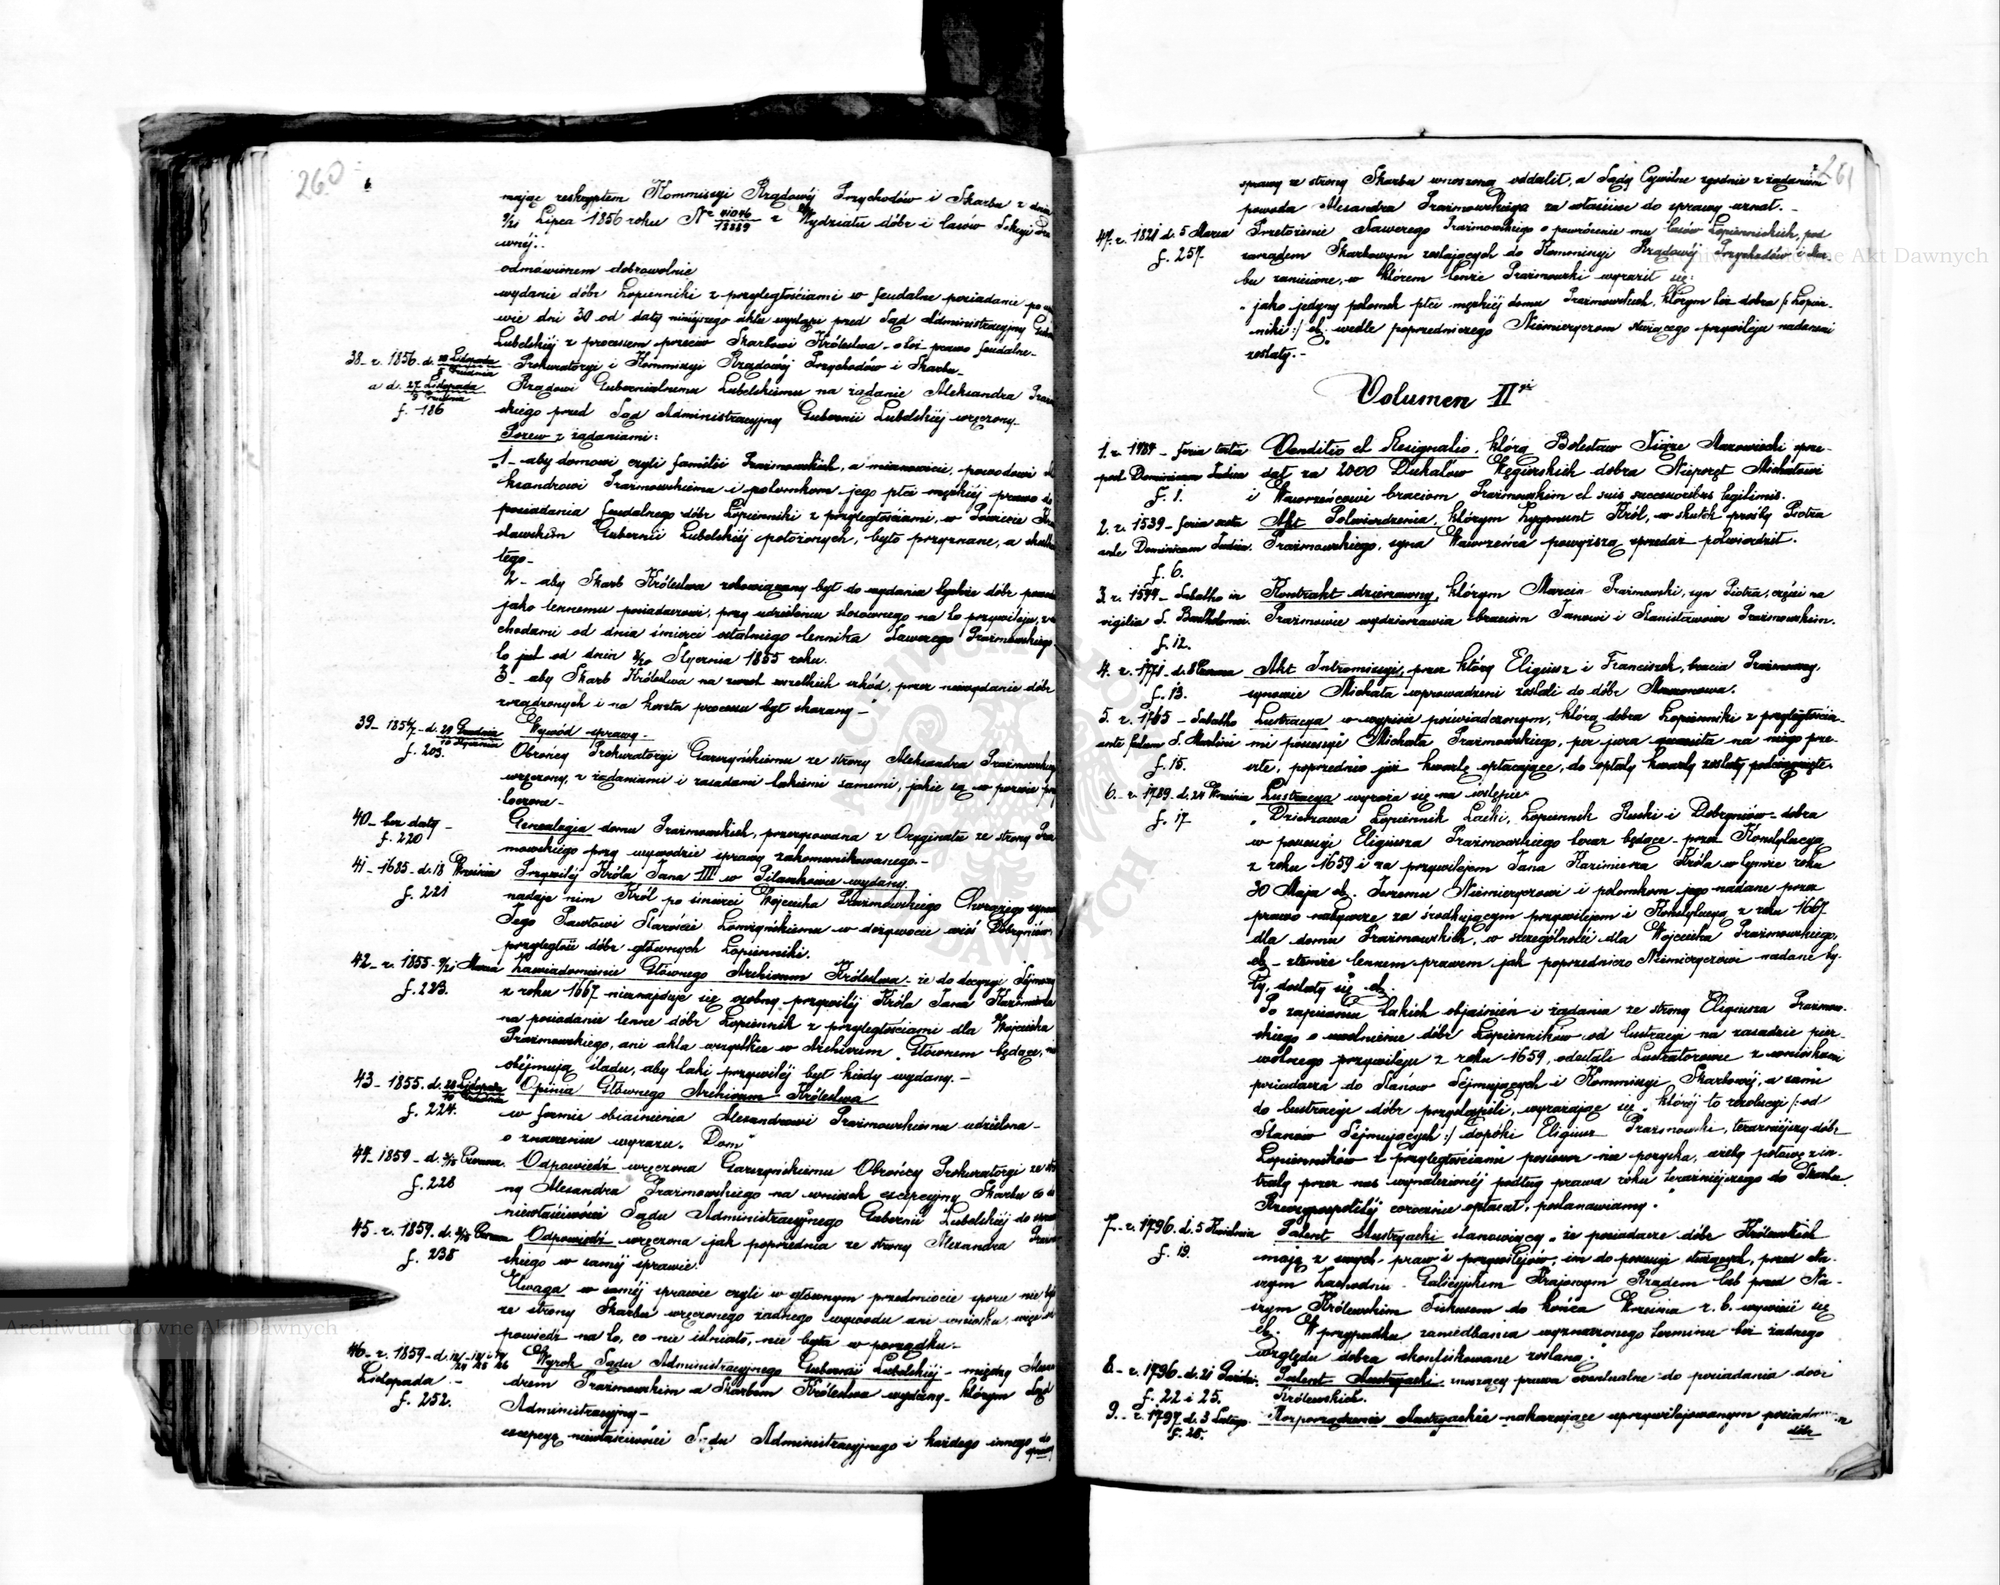 260
mając reskryptem Kommissyi Rządowéj Przychodów i Skarbu z dnia
9/21 Lipca 1856 roku Nr 41046/18889 z Wydziału dóbr i lasów Sekcyi
wnéj.
odmówionem dobrowolnie
wydanie dóbr Łopienniki z przyległościami w feudalne posiadanie po
wie dni 30 od daty niniejszego aktu wystąpi przed Sąd Administracyjny Gub
Lubelskiéj z processem przeciw Skarbowi Królestwa o toż prawo feudalne
38 - r. 1856. d. 20 Listopada Prokuratoryi i Kommissyi Rządowéj Przychodów i Skarbu
a d. 27 Listopada Rządowi Gubernialnemu Lubelskiemu na żądanie Aleksandra
f. 186 skiego przed Sąd Administracyjny Gubernii Lubelskiéj wręczony
Pozew z żądaniami:
„1 - aby domowi czyli familii Prażmowskich, a mianowicie, powodowi
ksandrowi Prażmowskiemu i potomkom jego płci męzkiéj prawo do
posiadania feudalnego dóbr Łopienniki z przyległościami, w Powiecie
stawskim Gubernii Lubelskiéj położonych, było przyznane, a skutk
tego
2 - aby Skarb Królestwa zobowiązany był do wydania tychże dóbr powo
jako lennemu posiadaczowi, przy udzieleniu stosownego na to przywileju, z
chodami od dnia śmierci ostatniego lennika Xawerego Prażmowskiego
to jest od dnia 8/20 Stycznia 1855 roku.
3 - aby Skarb Królestwa na zwrot wszelkich szkód, przez niewydanie dóbr
zrządzonych i na koszta processu był skazany"
39 - 1856/7 - d. 29 Grudnia/10 Stycznia Wywód sprawy
f. 203. Obrońcy Prokuratoryi Garszyńskiemu ze strony Aleksandra Prażmowskiego
wręczony, z żądaniami i zasadami takiemi samemi, jakie są w pozwie
toczone
40 - bez daty - Genealogia domu Prażmowskich, przerysowana z Oryginału ze strony
f. 220 mowskiego przy wywodzie sprawy zakomunikowanego.
41 - 1685 - d. 18 Września Przywiléj Króla Jana III w Pilaszkowie wydany.
f. 221 nadaje nim Król po śmierci Wojciecha Prażmowskiego Chorążego
Jego Pawłowi Staroście Łomżyńskiemu w dożywocie wieś Dobryniów
przyległość dóbr głównych Łopienniki.
42 - r. 1855 - 9/21 Marca Zawiadomienie Głównego Archivum Królestwa - że do decyzyi Sejmowéj
f. 223. z roku 1667 nieznajduje się osobny przywiléj Króla Jana Kazimierza
na posiadanie lenne dóbr Łopiennik z przyległościami dla Wojciecha
Prażmowskiego, ani akta wszystkie w Archivum Głównem będące, nie
obéjmują śladu, aby taki przywiléj był kiedy wydany.
43 - 1855. d. 28 Listopada Opinia Głównego Archivum Królestwa
f. 224. w formie objaśnienia Alexandrowi Prażmowskiemu udzielona
o znaczeniu wyrazu „Dom"
44 - 1859 - d. 3/15 Czerwca. Odpowiedź wręczona Garszyńskiemu Obrońcy Prokuratoryi ze
f. 228 ny Alexandra Prażmowskiego na wniosek excepcyjny Skarbu co do
niewłaściwości Sądu Administracyjnego Gubernii Lubelskiéj do
45 - r. 1859. d. 3/15 Czerwca Odpowiedź wręczona jak poprzednia ze strony Alexandra
f. 238 skiego w saméj sprawie.
Uwaga w saméj sprawie czyli w głównym przedmiocie sporu nie było
ze strony Skarbu wręczonego żadnego wywodu ani wniosku, więc
powiedź na to, co nie istniało, nie była w porządku.
46 - r. 1859 - d. Wyrok Sądu Administracyjnego Gubernii Lubelskiéj - między
Listopada drem Prażmowskim a Skarbem Królestwa wydany - którym Sąd
f. 252. Administracyjny
excepcyę niewłaściwości Sądu Administracyjnego i każdego innego do
sprawy
261
sprawy ze strony Skarbu wnoszoną oddalił, a Sądy Cywilne zgodnie z żądaniem
powoda Alexandra Prażmowskiego za właściwe do sprawy uznał.
47. r. 1821 d. 5 Marca Przełożenie Xawerego Prażmowskiego o powrócenie mu lasów Łopiennickich, pod
f. 257. zarządem Skarbowym zostających do Kommissyi Rządowéj Przychodów i Skar-
bu zaniesione, w którem tenże Prażmowski wyraził się:
„jako jedyny potomek płci męzkiéj domu Prażmowskich, którym też dobra /: Łopien-
niki :/ etc. wedle poprzedniczego Niemierzycom służącego przywileju nadanemi
zostały."
Volumen II
1. r. 1484 - feria tertia Venditio et Resignatio, którą Bolesław Xiąże Mazowiecki sprze-
post Dominicam Judica daż za 2000 Dukatów Węgierskich dobra Nieporęt Michałowi
f. 1. i Wawrzeńcowi braciom Prażmowskim et suis successoribus legitimis.
2. r. 1539 - feria sexta Akt Potwierdzenia, którym Zygmunt Król, w skutek prośby Piotra
ante Dominicam Judica. Prażmowskiego, syna Wawrzeńca powyższą sprzedaż potwierdził.
f. 6.
3. r. 1544 - Sabatho in Kontrakt dzierżawny, którym Marcin Prażmowski, syn Piotra, części na
vigilia S. Bartholomei. Prażmowie wydzierżawia braciom Janowi i Stanisławowi Prażmowskim.
f. 12.
4. r. 1771 - d. 8 Czerwca Akt Intromissyi, przez który Eligiusz i Franciszek, bracia Prażmowscy,
f. 13. synowie Michała wprowadzeni zostali do dóbr Mazonowa.
5. r. 1765 - Sabatho Lustracya w wypisie poświadczonym, którą dobra Łopienniki z przyległościa-
ante festum S. Martini mi possessyi Michała Prażmowskiego, per jura quaesita na niego prze-
f. 15. szłe, poprzednio już kwartę opłacające, do opłaty kwarty zostały podciągnięte.
6. - r. 1789 - d. 24 Września Lustracya wyraża się na wstępie:
f. 17 „Dzierżawa Łopiennik Lacki, Łopiennik Ruski i Dobryniów - dobra
w possessyi Eligiusza Prażmowskiego teraz będące - przez Konstytucyę
z roku 1659 i za przywilejem Jana Kazimierza Króla w tymże roku
30 Maja etc. Jerzemu Niemierzycowi i potomkom jego nadane poza
prawo nabywcze za środkującym przywilejem i Konstytucyą z roku 1667
dla domu Prażmowskich, w szczególności dla Wojciecha Prażmowskiego,
etc. - temże lennem prawem jak poprzedniczo Niemierzycowi nadane by-
ły, dostały się etc.
Po zapisaniu takich objaśnień i żądania ze strony Eligiusza Prażmow-
skiego o uwolnienie dóbr Łopienników od lustracyi na zasadzie pier-
wotnego przywileju z roku 1659, odesłali Lustratorowie z wnioskami
posiadacza do Stanów Sejmujących i Kommissyi Skarbowéj, a sami
do lustracyi dóbr przystąpili, wyrażając się „któréj to rezolucyi /: od
Stanów Sejmujących :/ dopóki Eligiusz Prażmowski, teraźniejszy dóbr
Łopienników z przyległościami possessor nie pozyska, ażeby połowę z in-
traty przez nas wynalezionéj podług prawa roku teraźniejszego do Skarbu
Rzeczypospolitéj corocznie opłacał, postanawiamy."
7. - r. 1796. d. 5 Kwietnia Patent Austryacki stanowiący „że posiadacze dóbr Królewskich
f. 19. mają z swych praw i przywilejów, im do possesyi służących, przed Na-
szym Zachodnio - Galicyjskim Krajowym Rządem lub przed Na-
szym Królewskim Fiskusem do końca Września r. b. wywieść się
etc. W przypadku zaniedbania wyznaczonego terminu bez żadnego
względu dobra skonfiskowane zostaną."
8 - r. 1796 - d. 21 Paździ. Patent Austryacki, znoszący prawa eventualne do posiadania dóbr
f. 22 i 25. Królewskich.
9. - r. 1797 d. 3 Lutego Rozporządzenie Austryackie nakazujące uprzywilejowanym posiadaczom
f. 28. dóbr
Archiwum Główne Akt Dawnych